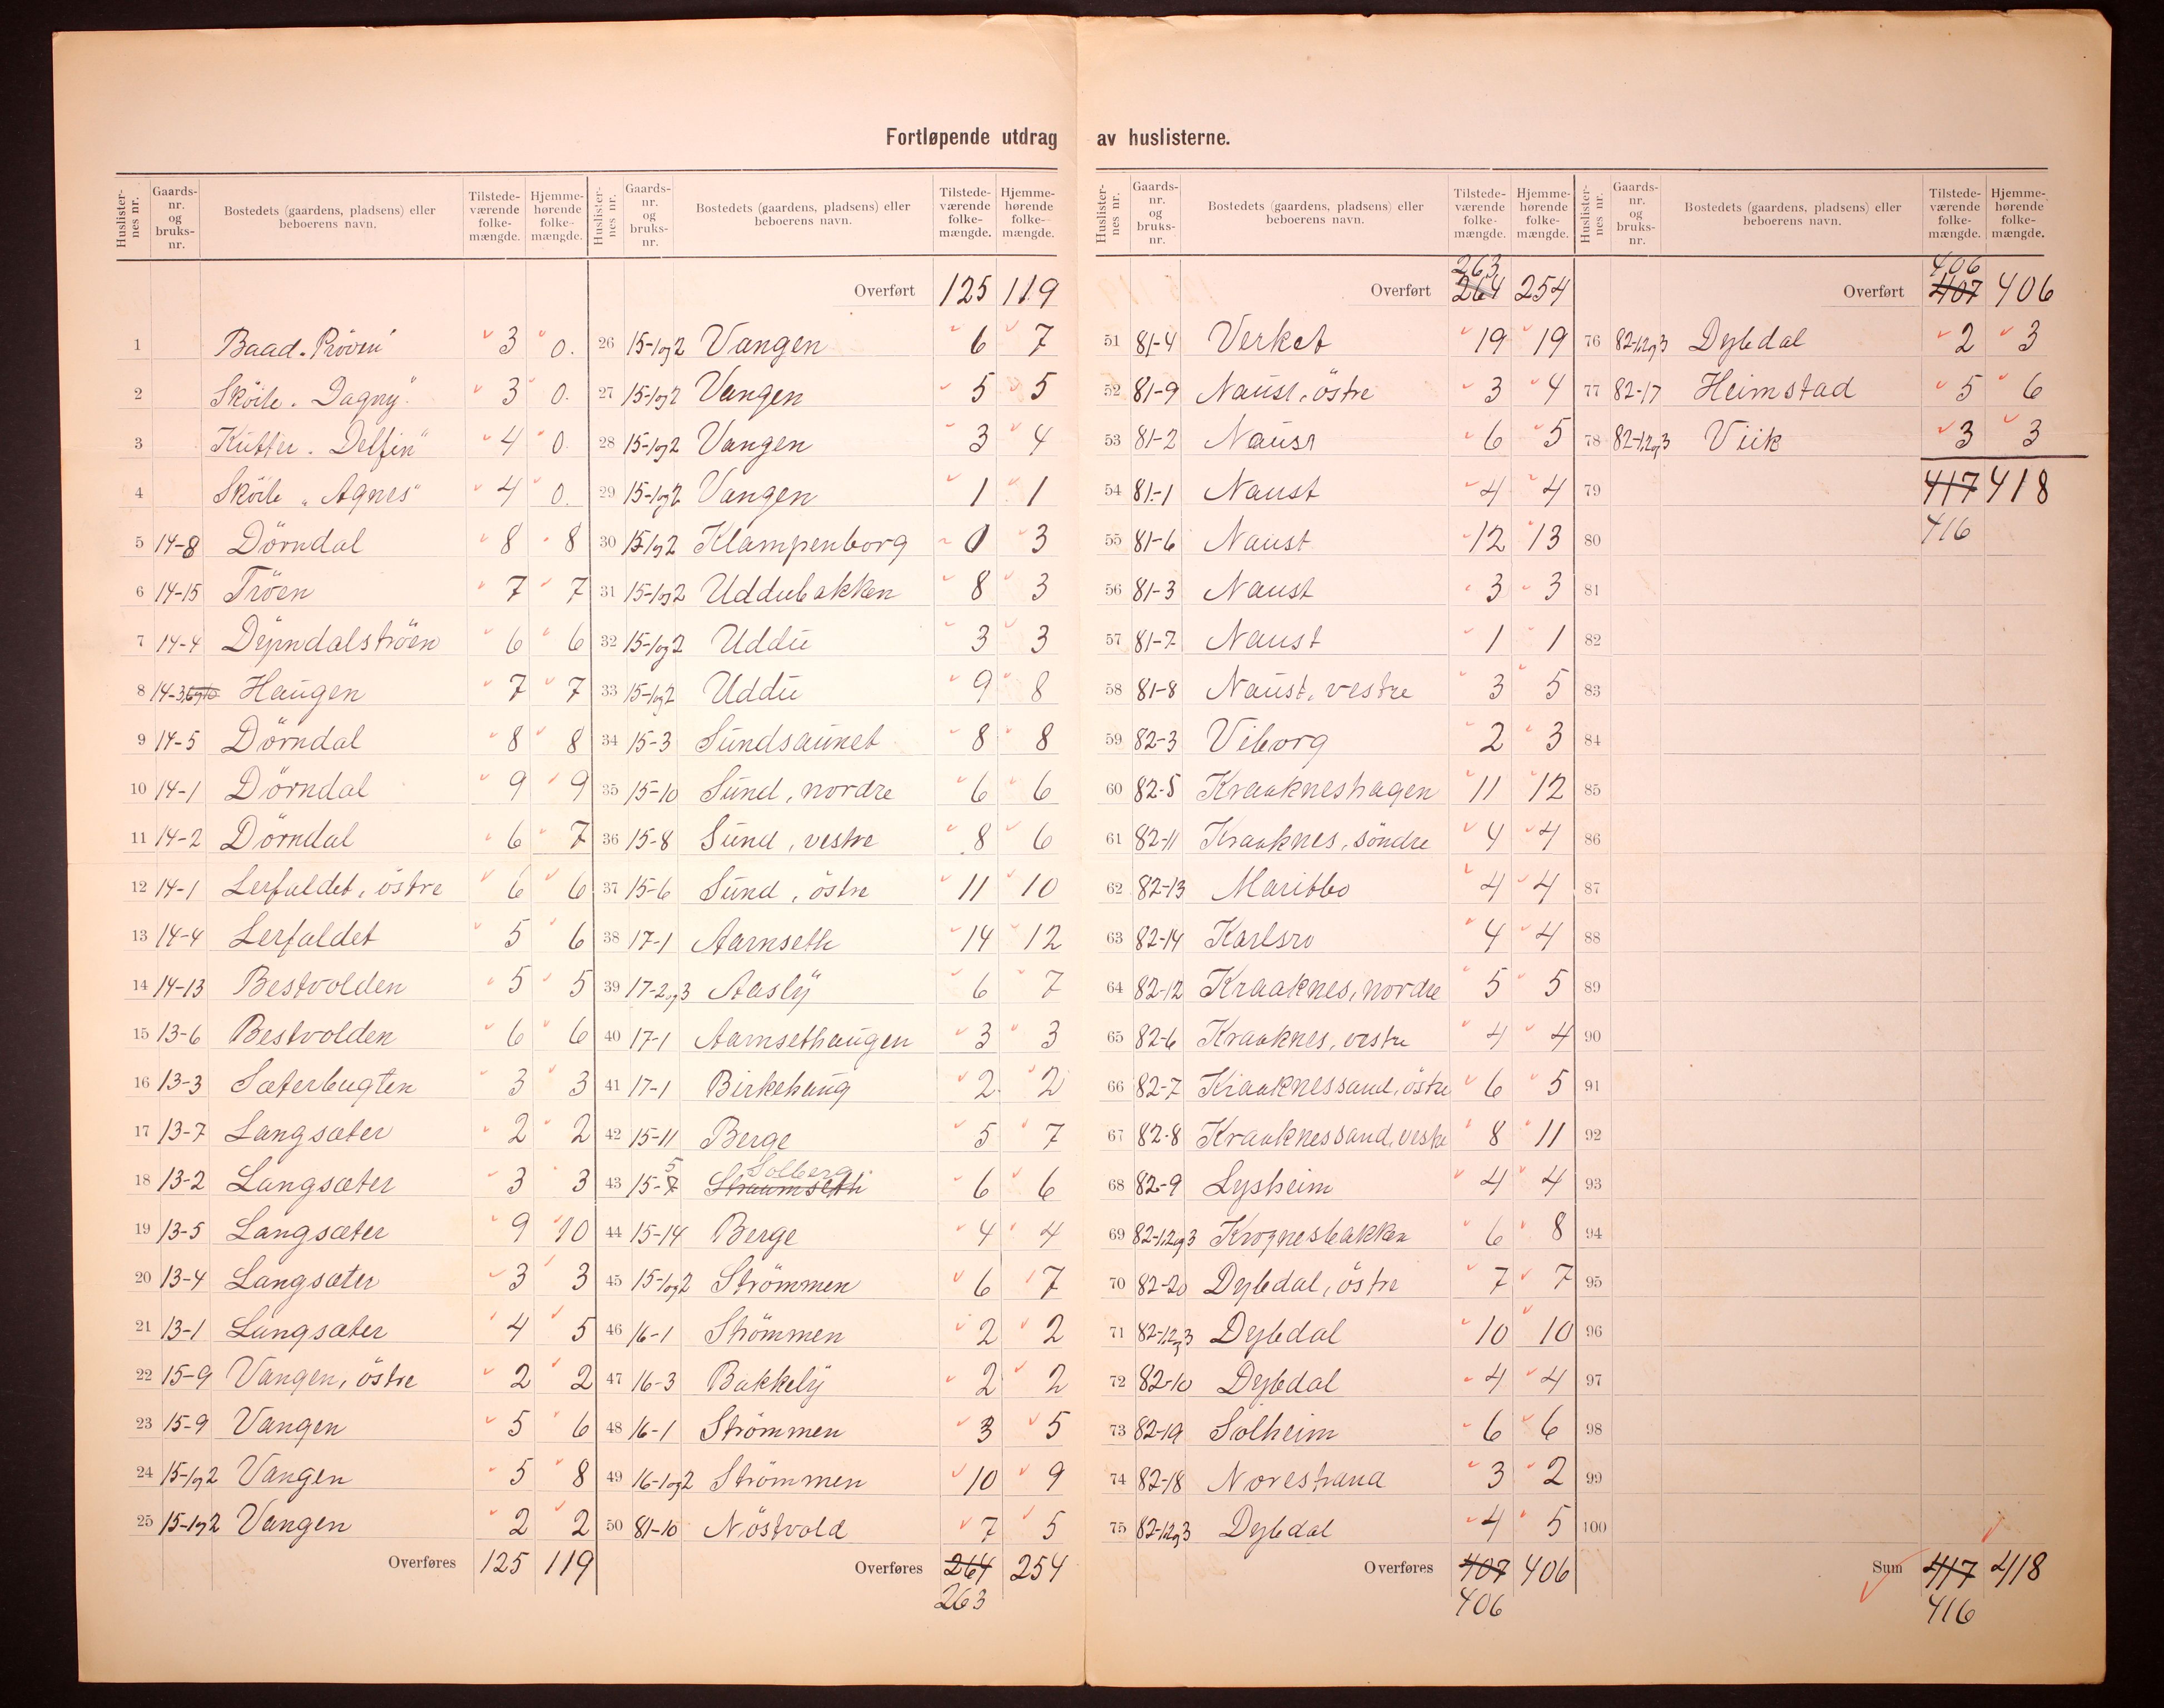 Fortløpende utdrag av huslisterne.
Huslister-nes nr. Gaards-nr. og bruks-nr. Bostedets (gaardens, pladsens) eller beboerens navn. Tilstede-værende folke-mængde. Hjemme-hørende folke-mængde.
1 Baad. Pröven" 3 0.
2 Sköite. Dagny" 3 0.
3 Kutter. Delfin" 4 0.
4 Sköite „Agnes" 4 0.
5 14-8 Dörndal 8 8
6 14-15 Tröen 7 7
7 14-4 Dörndalströen 6 6
8 14-3,6og10 Haugen 7 7
9 14-5 Dörndal 8 8
10 14-1 Dörndal 9 9
11 14-2 Dörndal 6 7
12 14-1 Lerfaldet, östre 6 6
13 14-4 Lerfaldet 5 6
14 14-13 Bestvolden 5 5
15 13-6 Bestvolden 6 6
16 13-3 Sæterbugten 3 3
17 13-7 Langsæter 2 2
18 13-2 Langsæter 3 3
19 13-5 Langsæter 9 10
20 13-4 Langsæter 3 3
21 13-1 Langsæter 4 5
22 15-9 Vangen, östre 2 2
23 15-9 Vangen 5 6
24 15-1og2 Vangen 5 8
25 15-1og2 Vangen 2 2
Overføres 125 119
Huslister-nes nr. Gaards-nr. og bruks-nr. Bostedets (gaardens, pladsens) eller beboerens navn. Tilstede-værende folke-mængde. Hjemme-hørende folke-mængde.
Overført 125 119
26 15-1og2 Vangen 6 7
27 15-1og2 Vangen 5 5
28 15-1og2 Vangen 3 4
29 15-1og2 Vangen 1 1
30 15-1og2 Klampenborg 0 3
31 15-1og2 Uddubakken 8 3
32 15-1og2 Uddu 3 3
33 15-1og2 Uddu 9 8
34 15-3 Sundsaunet 8 8
35 15-10 Sund, nordre 6 6
36 15-8 Sund, vestre 8 6
37 15-6 Sund, östre 11 10
38 17-1 Aarnseth 14 12
39 17-2og3 Aasly 6 7
40 17-1 Aarnsethaugen 3 3
41 17-1 Birkehaug 2 2
42 15-11 Berge 5 7
5 Solberg
43 15-7 Straumseth 6 6
44 15-14 Berge 4 4
45 15-1og2 Strömmen 6 7
46 16-1 Strömmen 2 2
47 16-3 Bakkely 2 2
48 16-1 Strömmen 3 5
49 16-1og2 Strömmen 10 9
50 81-10 Nöstvold 7 5
Overføres 264 254
263
Huslister-nes nr. Gaards-nr. og bruks-nr. Bostedets (gaardens, pladsens) eller beboerens navn. Tilstede-værende folke-mængde. Hjemme-hørende folke-mængde.
263
Overført 264 254
51 81-4 Verket 19 19
52 81-9 Naust, östre 3 4
53 81-2 Naust 6 5
54 81-1 Naust 4 4
55 81-6 Naust 12 13
56 81-3 Naust 3 3
57 81-7 Naust 1 1
58 81-8 Naust, vestre 3 5
59 82-3 Viborg 2 3
60 82-5 Kraakneshagen 11 12
61 82-11 Kraaknes, söndre 4 4
62 82-13 Maritbo 4 4
63 82-14 Karlsro 4 4
64 82-12 Kraaknes, nordre 5 5
65 82-6 Kraaknes, vestre 4 4
66 82-7 Kraaknessand, östre 6 5
67 82-8 Kraaknessand, vestre 8 11
68 82-9 Lysheim 4 4
69 82-1,2og3 Krognesbakken 6 8
70 82-20 Dybdal, östre 7 7
71 82-1,2og3 Dybdal 10 10
72 82-10 Dybdal 4 4
73 82-19 Solheim 6 6
74 82-18 Norestrand 3 2
75 82-1,2og3 Dybdal 4 5
Overføres 407 406
406
Huslister-nes nr. Gaards-nr. og bruks-nr. Bostedets (gaardens, pladsens) eller beboerens navn. Tilstede-værende folke-mængde. Hjemme-hørende folke-mængde.
406
Overført 407 406
76 82-1,2og3 Dybdal 2 3
77 82-17 Heimstad 5 6
78 82-1,2og3 Viik 3 3
79 417 418
80 416
81
82
83
84
85
86
87
88
89
90
91
92
93
94
95
96
97
98
99
100
Sum 417 418
416